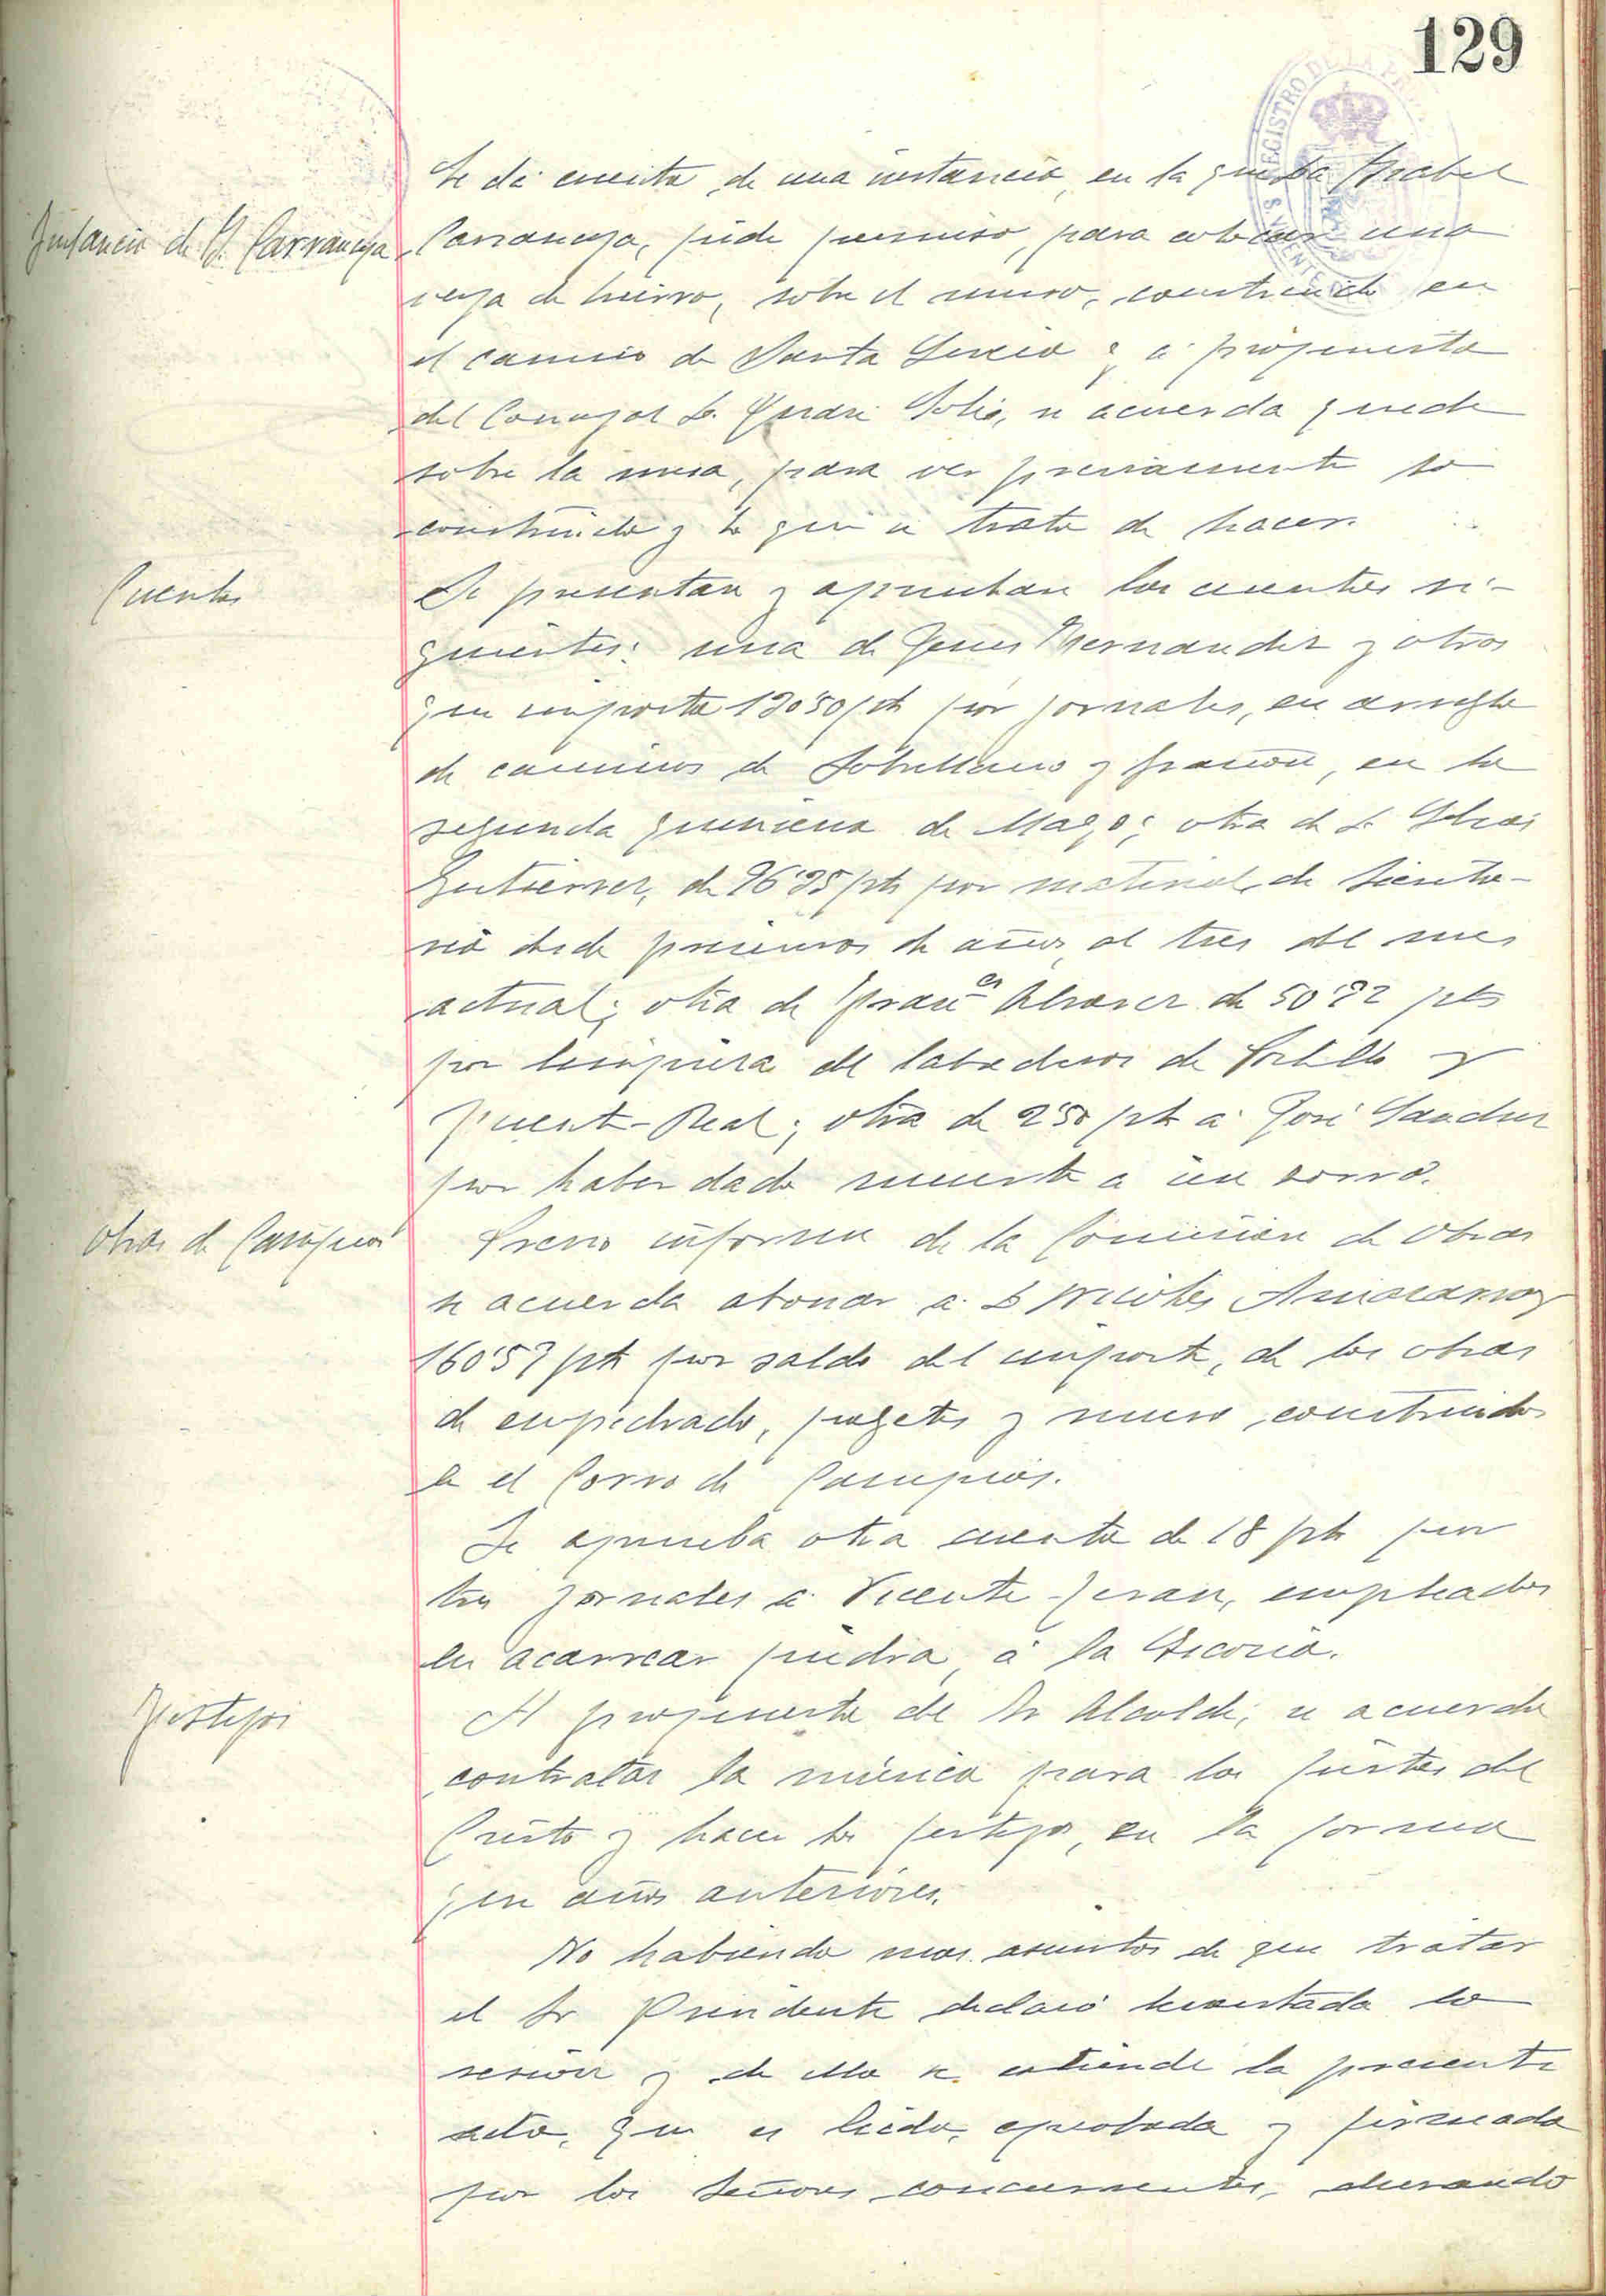 129
Se dá cuenta, de una instancia, en la que Da Isabel
Instancia de I. Carranceja
Carranceja, pide permiso, para colocar una
verja de hierro, sobre el muro, construido en
el camino de Santa Lucia y á propuesta
del Concejal D. Solis, se acuerda quede
sobre la mesa, para ver previamente lo
construido y lo que se trata de hacer.
Cuentas
Se presentan y aprueban las cuentas si-
guientes: una de Jesus Hernandez y otros
que importa pts por jornales, en arreglo
de caminos de Sobrellano y, en la
segunda quincena de Mayo; otra de D.
Gutierrez, de pts por material de Secreta-
ria desde primeros de año, al tres del mes
actual; otra de Franco Alvarez de 50'22 pts
por limpieza de labaderos de Portillo y
Fuente-Real; otra de 2'50 pts a José Sanchez
por haber dado muerte a un zorro.
Obras de Campios
Previo informe de la Comision de Obras
se acuerda abonar a D
pts por saldo del importe, de las obras
de empedrado, y muro, construidos
en el Corro de Campios.
Se aprueba otra cuenta de 18 pts por
tres jornales a Vicente Teran, empleados
en acarrear piedra, á la
Festejos
A propuesta del Sr Alcalde, se acuerda
contratar la música para las fiestas del
Cristo y hacer los festejos, en la forma
que años anteriores.
No habiendo mas asuntos de que tratar
el Sr Presidente declaró levantada la
sesión y de ella se extiende la presente
acta, que es leida, aprobada y firmada
por los Señores concurrentes,